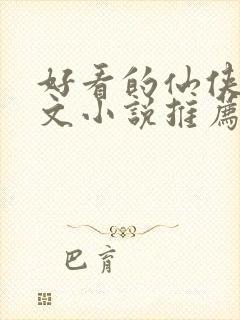 好看的仙侠
文小説推薦
巴育